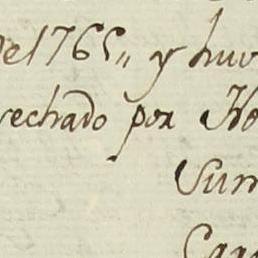 de 1765,, y huv
echado por Ho
Sum
Ca